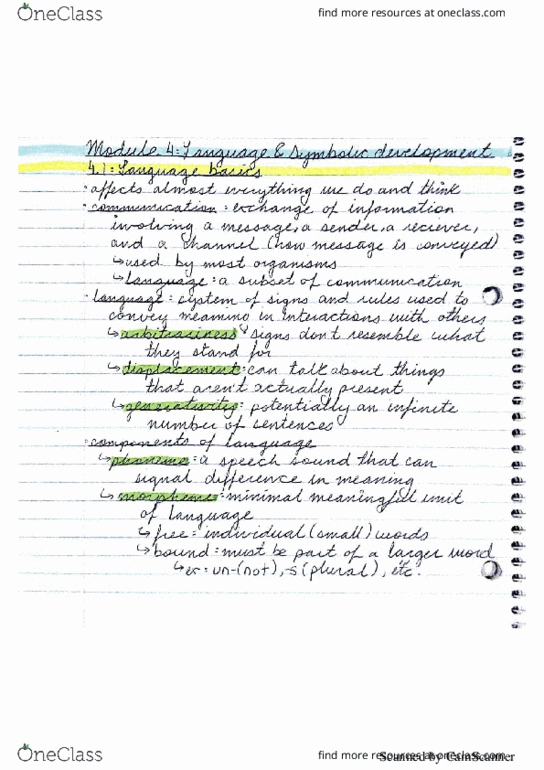 OneClass
find more resources at oneclass.com
Module 4: Language & Symbolic development
4.1: Language basics
· affects almost everything we do and think
· communication: exchange of information
involving a message, a sender, a reciever,
and a channel (how message is conveyed)
↳ used by most organisms
↳ language: a subset of communication
· language: system of signs and rules used to
convey meaning in interactions with others
↳ arbitrariness: signs don't resemble what
they stand for
↳ displacement: can talk about things
that aren't actually present
↳ generativity: potentially an infinite
number of sentences
· components of language
↳ phoneme: a speech sound that can
signal difference in meaning
↳ morpheme: minimal meaningful unit
of language
↳ free: individual (small) words
↳ bound: must be part of a larger word
↳ ex: un-(not), -s (plural), etc.
OneClass
find more resources at oneclass.com
Scanned by CamScanner